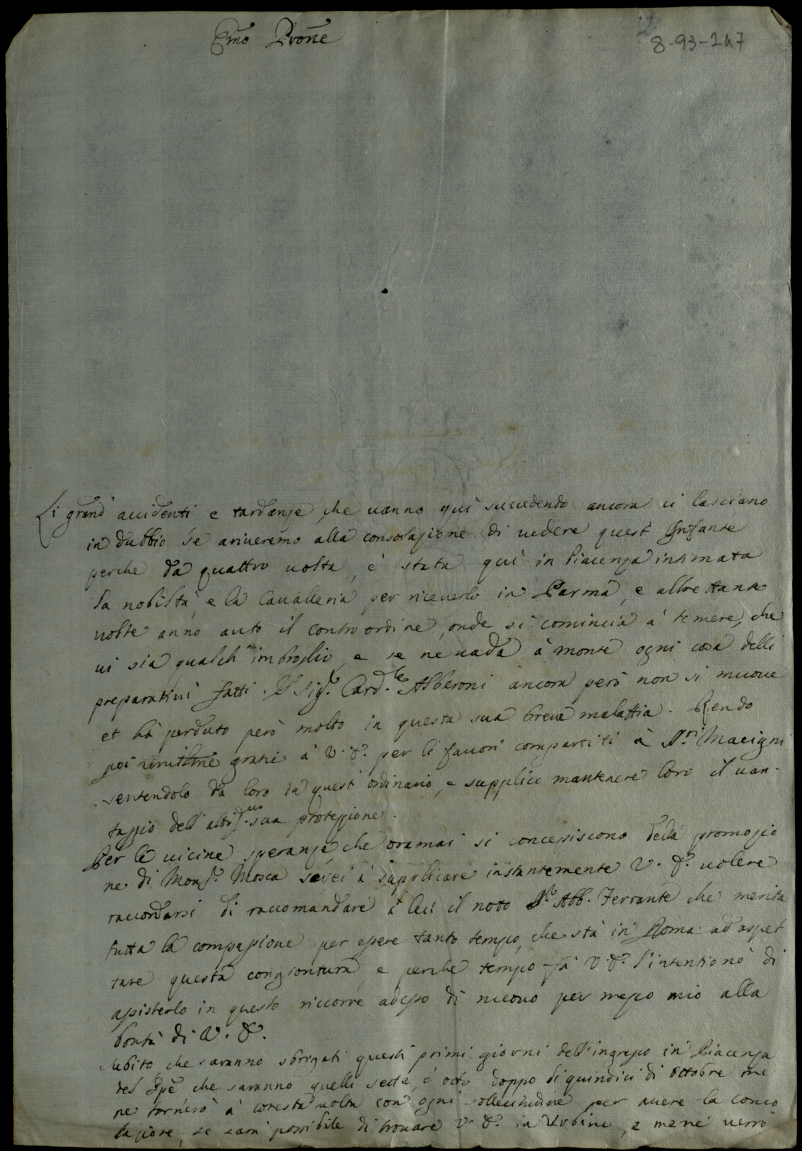 Emo Prone
8-93-247
Li grand' accidenti e tardanze, che vanno qui succedendo ancora ci lasciano
in dubbio se ariveremo alla consolazione di vedere quest' Infante
perche da quattro volta, è stata qui in Piacenza intimata
la nobiltà, e la Cavalleria per riceverlo in Parma, e altre tante
volte anno auto il contro ordine, onde si comincia à temere, che
vi sia qualch' imbroglio, e se ne vada à monte ogni cosa delli
preparativi fatti. Il Sig.r Card.le Alberoni ancora però non si muove
et hà perduto però molto in questa sua breve malattia. Rendo
poi grazie à V. E. per li favori compartiti à Macigni
sentendolo da loro in quest' ordinario, e supplico mantenere loro il van-
taggio dell' sua protezzione.
Per le vicine speranze che oramai si concepiscono della promozio
ne di Mons.r Mosca à supplicare instantemente V. E. volere
raccordarsi di raccomandare à lui il noto Abb. Ferrante che merita
tutta la compassione per essere tanto tempo, che stà in Roma ad aspet
tare questa congiontura, e perche tempo fà V. E. l'intentionò di
assisterlo in questo riccorre adesso di nuovo per mezo mio alla
bontà di V. E.
Subito che saranno sbrigati questi primi giorni dell' ingresso in Piacenza
del che saranno quelli sette, ò otto doppo li quindici di Ottobre me
ne tornerò à cotesta volta con ogni sollecitudine per avere la conso
lazione, se sarà possibile di trovare V. E. in Urbino, e me ne verrò